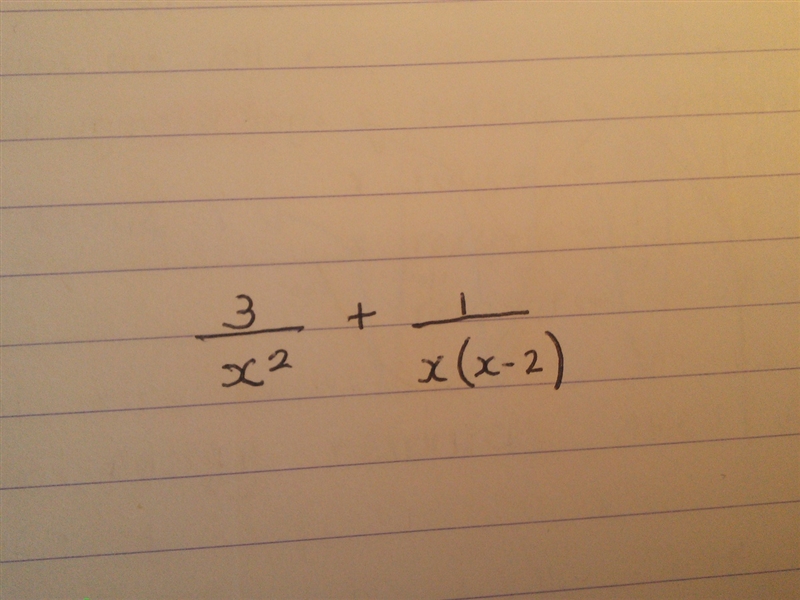 3/x² + 1/x(x-2)